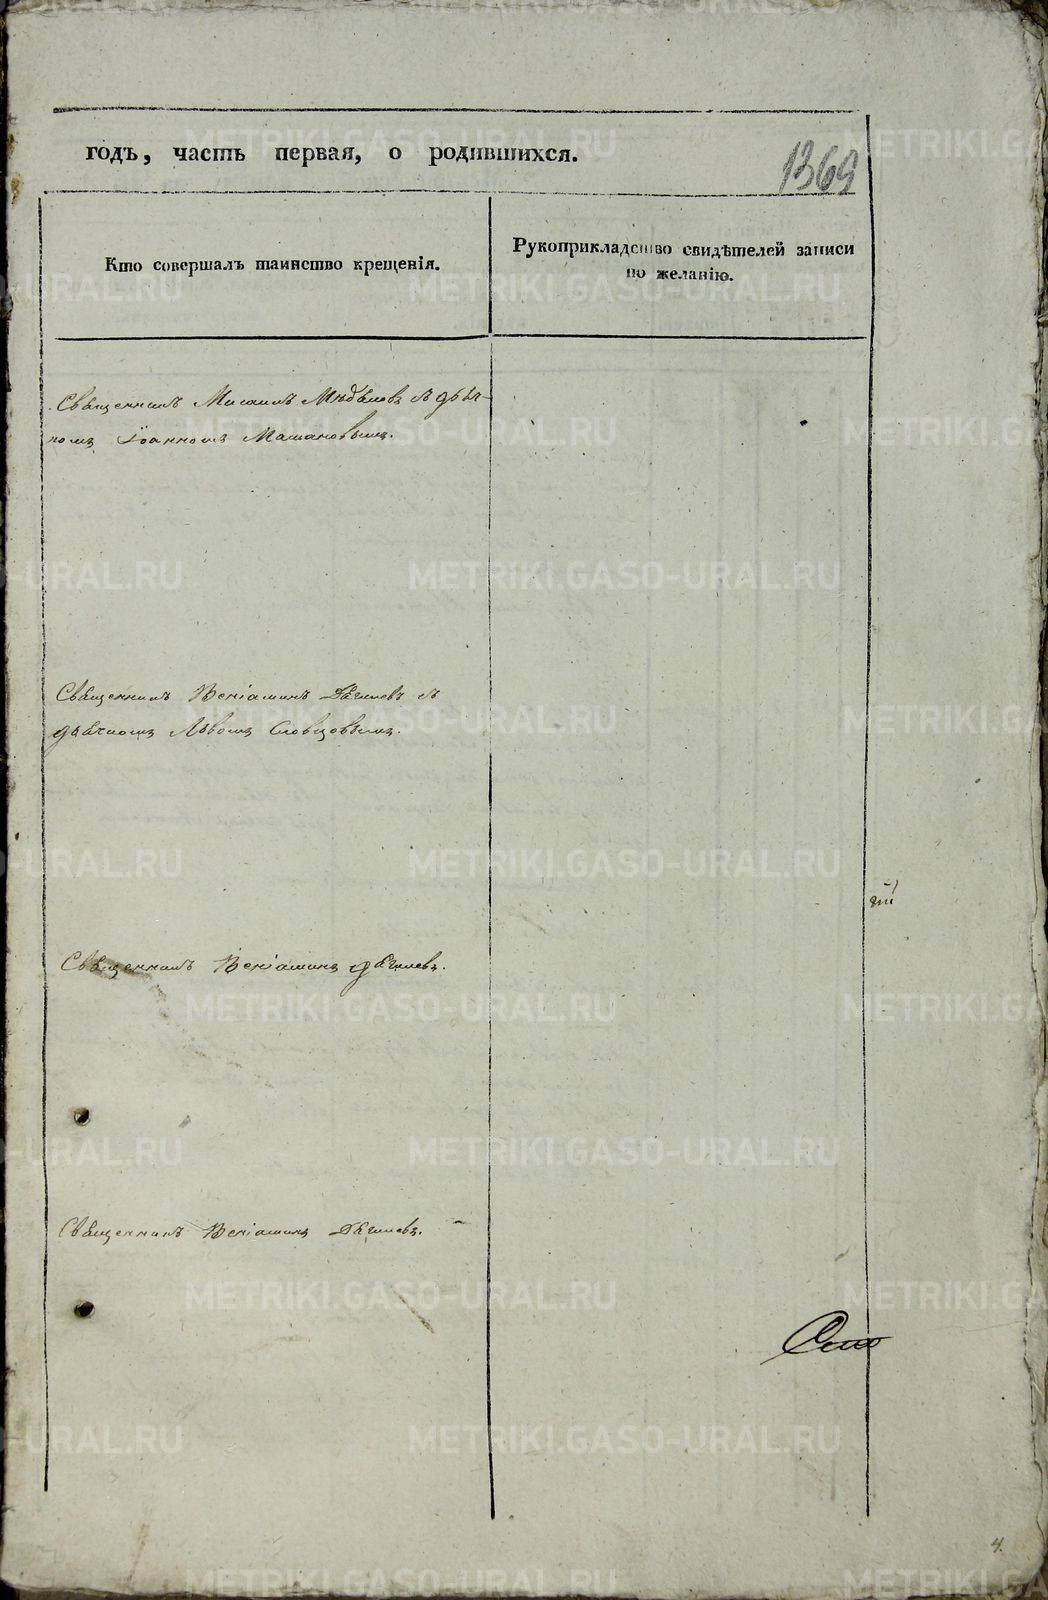 годъ, часть первая, о родившихся.
1369
Кто совершалъ таинство крещенія.
Рукоприкладство свидѣтелей записи
по желанію.
Священникъ Мисаилъ съ дьяч-
комъ Іоанномъ
Священникъ Веніаминъ Дягилевъ съ
дьячкомъ Львомъ Словцовымъ.
Священникъ Веніаминъ Дягилевъ.
Священникъ Веніаминъ Дягилевъ.
4.
METRIKI.GASO-URAL.RU